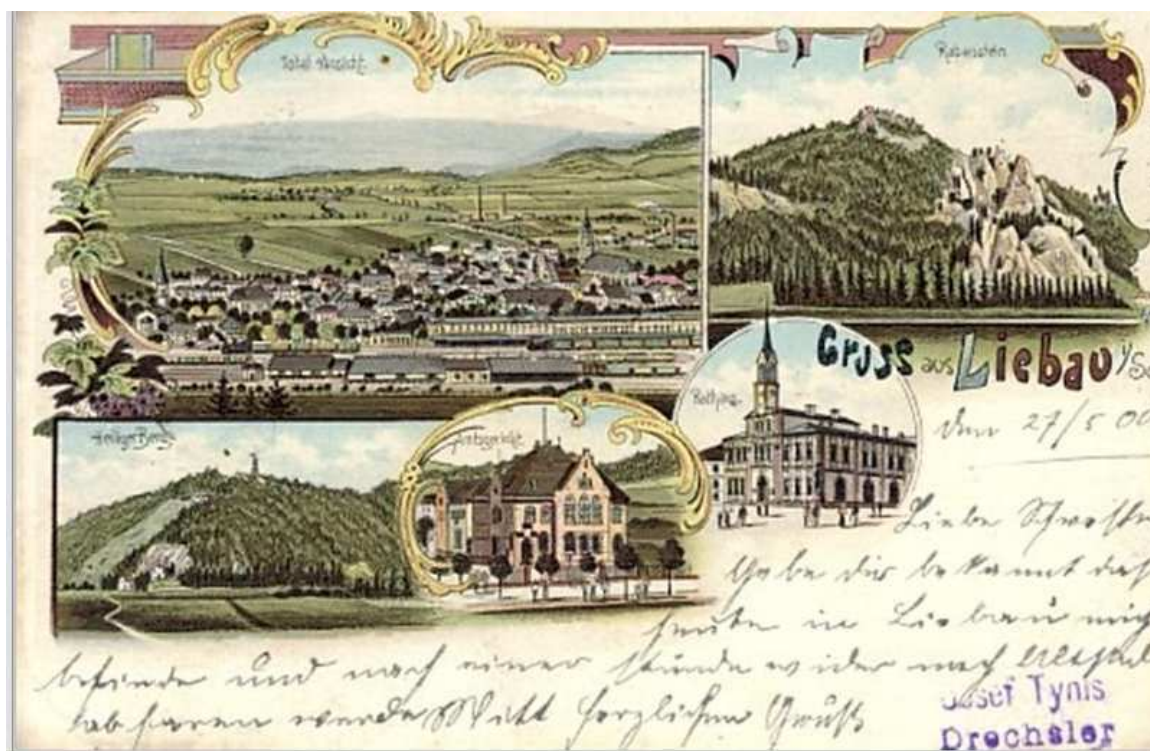 Total Ansicht.
Rabenstein.
Gruss aus Liebau i/Sc
Rathaus.
den 27/5 00
Heiliger Berg.
Amtsgericht.
Liebe Schwester
Gebe dir bekannt daß
heute in Liebau mich
befinde und nach einer stunde wider nach
abfaren werde Mitt herzlichen Gruß
Josef Tynis
Drechsler